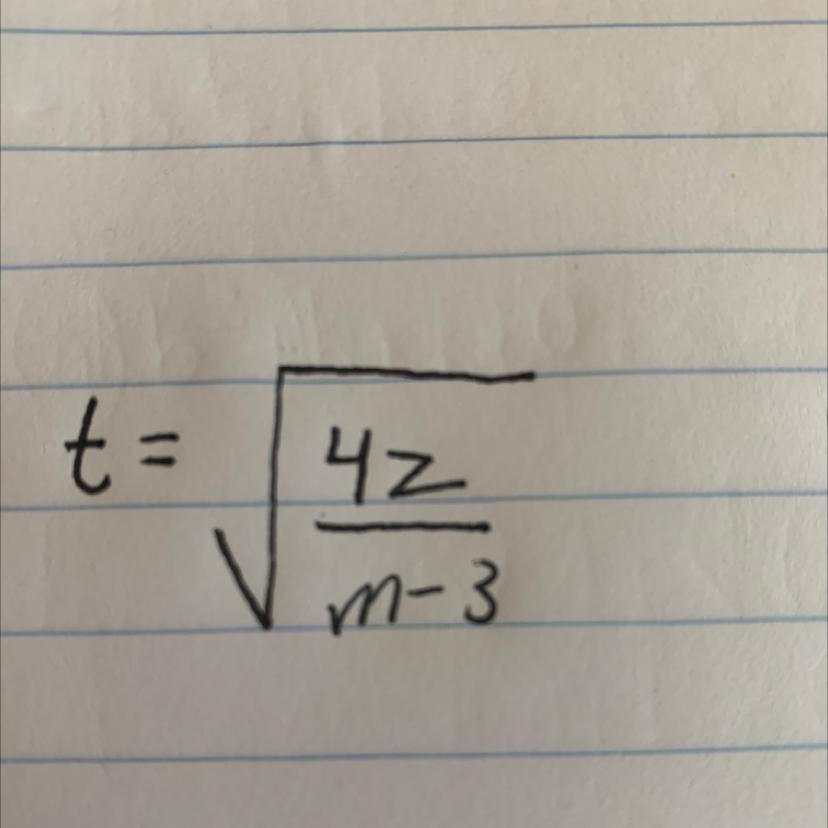 t = √(4z / (m - 3))